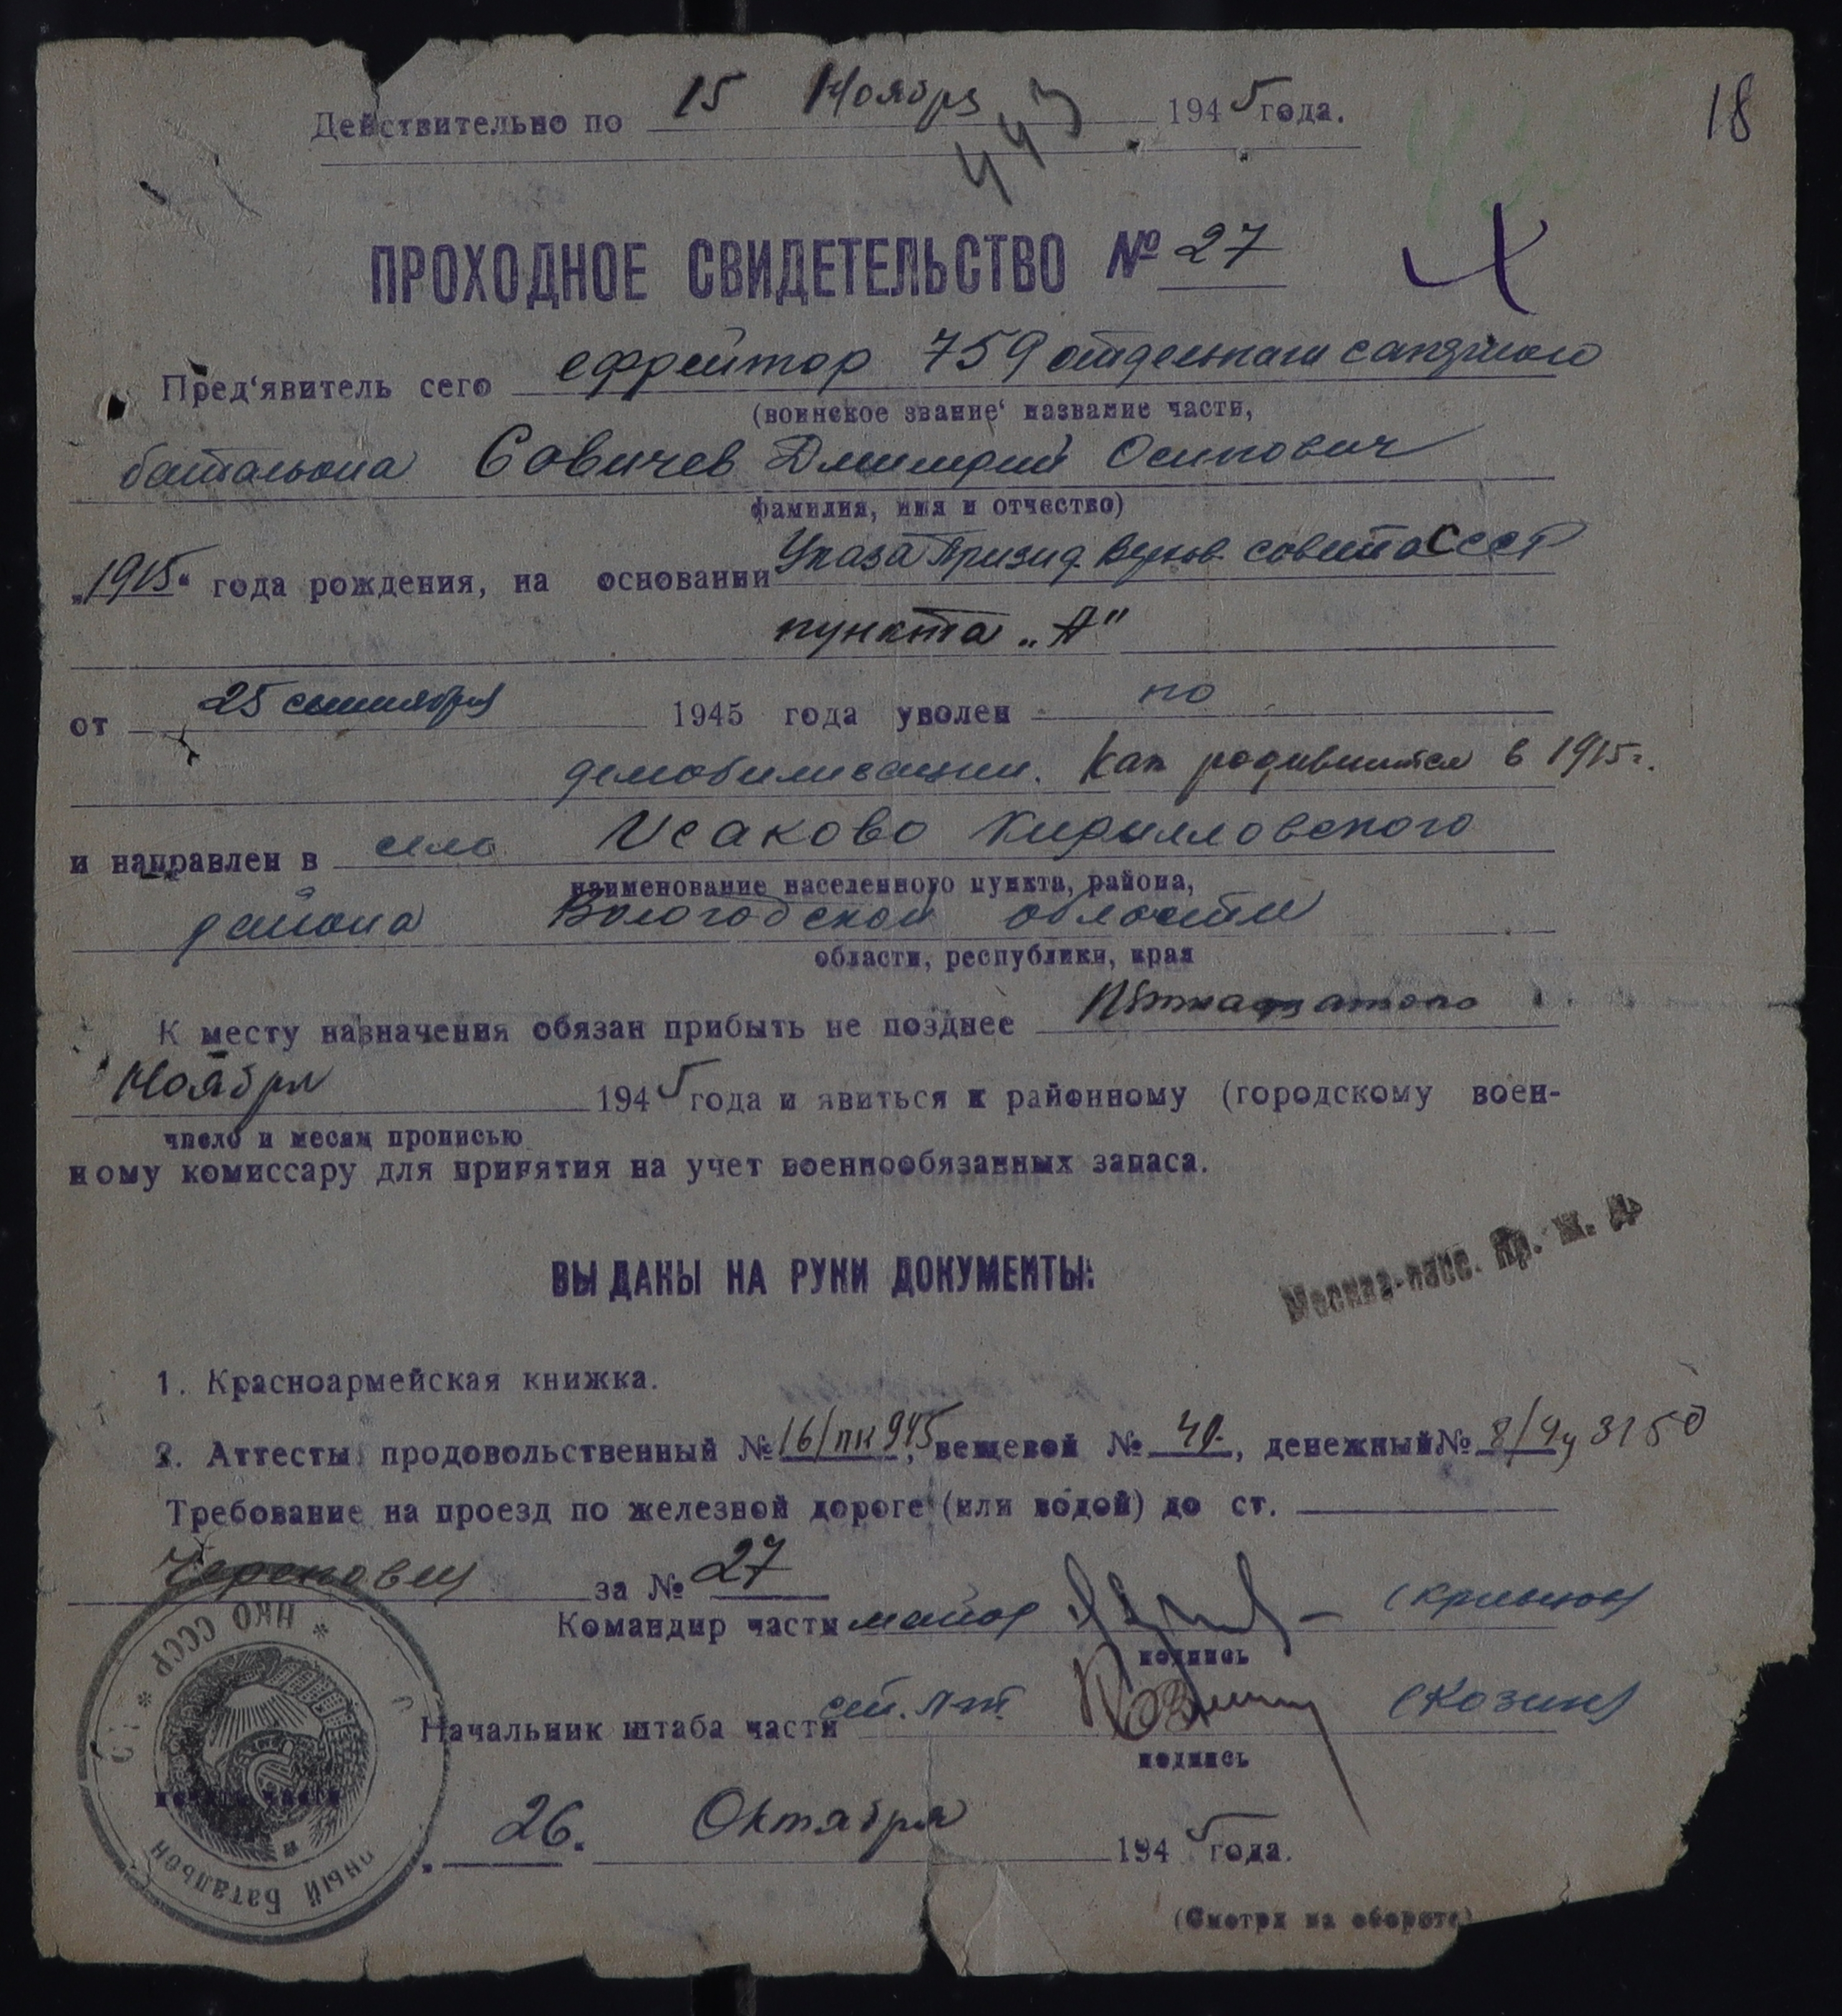 18
Действительно по 15 Ноября 1945 года.
443
ПРОХОДНОЕ СВИДЕТЕЛЬСТВО № 27
Пред‘явитель сего ефрейтор 759 отдельного саперного
(воинское звание‘ название части,
батальона Савичев Дмитрий Осипович
фамилия, имя и отчество)
„1915“ года рождения, на основании Указа Призид. Верхов. совета СССР
пункта „А"
от 25 сентября 1945 года уволен по
демобилизации. Как родившийся в 1915 г.
и направлен в село Исаково Кирилловского
наименование населенного пункта, района,
района Вологодской области
области, республики, края
К месту назначения обязан прибыть не позднее Пятнадцатого
Ноября 1945 года и явиться к районному (городскому воен-
число и месяц прописью
ному комиссару для принятия на учет военнообязанных запаса.
Москва-пасс. Яр. ж. д.
ВЫДАНЫ НА РУКИ ДОКУМЕНТЫ:
1. Красноармейская книжка.
2. Аттесты: продовольственный № 16/пк945, вещевой № 40., денежный №
Требование на проезд по железной дороге (или водой) до ст.
Череповец за № 27
НКО СССР
Командир части майор
подпись
Начальник штаба части (Козин)
подпись
печать части
Батальон
26. Октября 1945 года.
(Смотри на обороте)